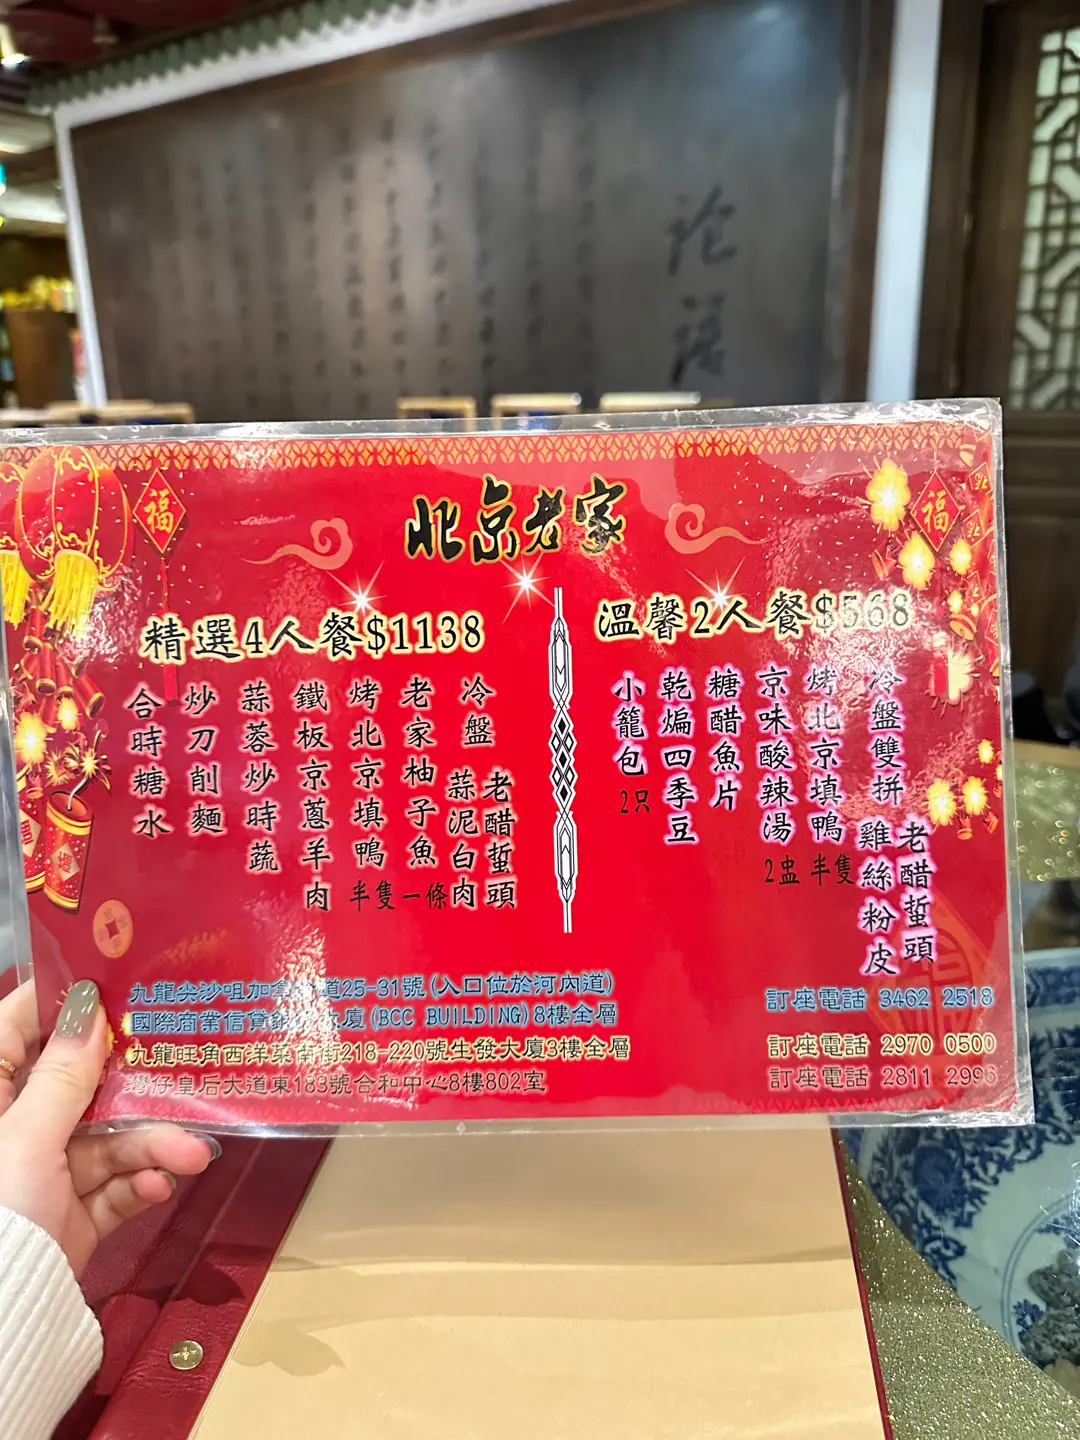 論語
北京老家
福
福
精選4人餐$1138
冷盤 老醋蜇頭
蒜泥白肉
老家柚子魚 一條
烤北京填鴨 半隻
鐵板京蔥羊肉
蒜蓉炒時蔬
炒刀削麵
合時糖水
溫馨2人餐$568
冷盤雙拼 老醋蜇頭
雞絲粉皮
烤北京填鴨 半隻
京味酸辣湯 2盅
糖醋魚片
乾煸四季豆
小籠包 2只
九龍尖沙咀加拿分道25-31號(入口位於河內道)
國際商業信貸銀行大廈(BCC BUILDING)8樓全層
訂座電話 3462 2518
九龍旺角西洋菜南街218-220號生發大廈3樓全層
訂座電話 2970 0500
灣仔皇后大道東183號合和中心8樓802室
訂座電話 2811 2996